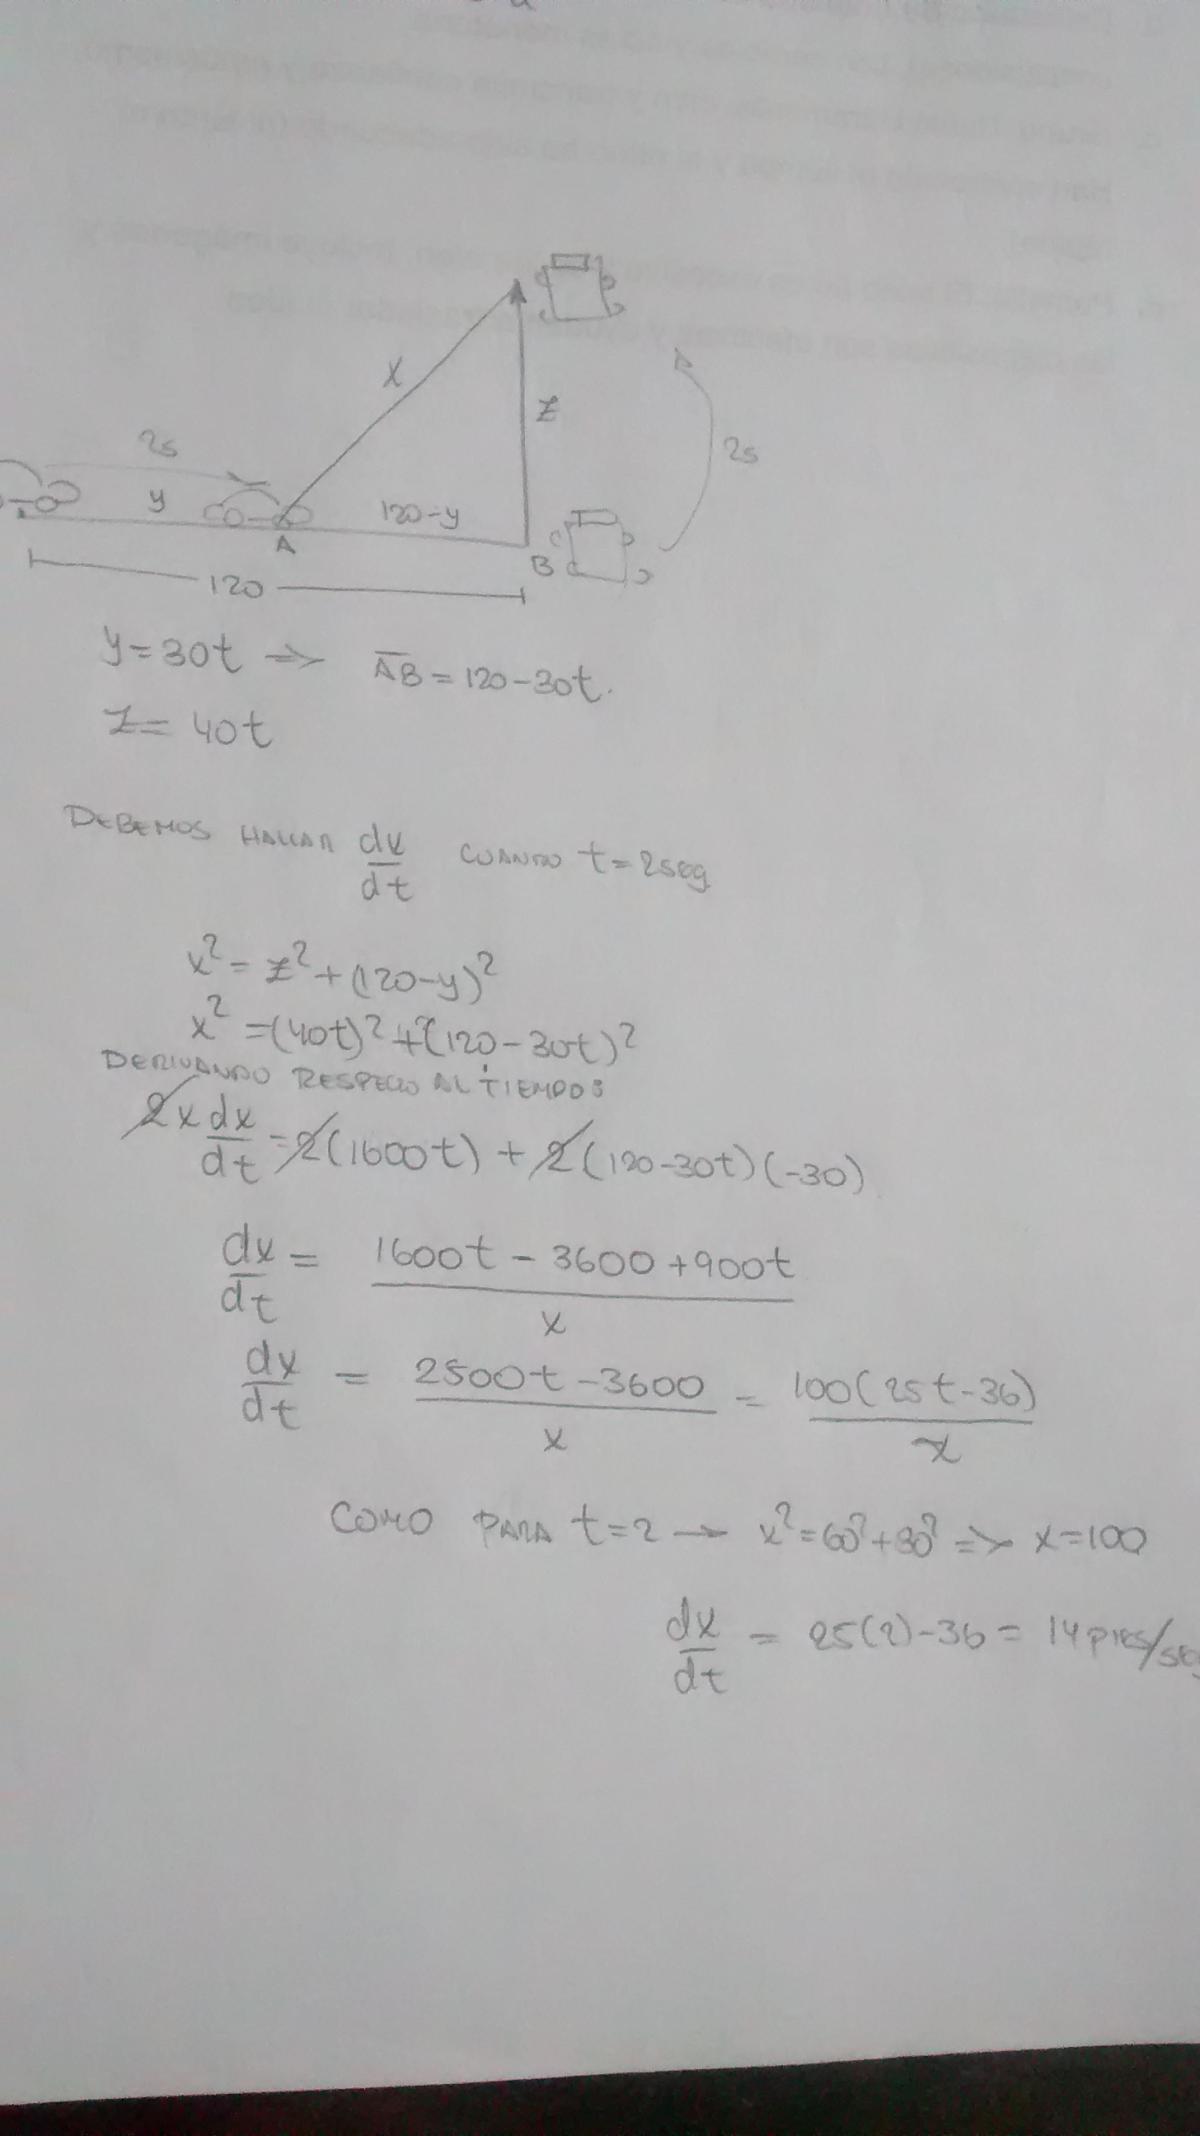 X
Z
2s
2s
y
120-y
A
B
120
y=30t => AB=120-30t.
Z= 40t
DEBEMOS HALLAR dx/dt CUANDO t=2seg
x²= z²+(120-y)²
x² =(40t)²+(120-30t)²
DERIVANDO RESPECTO AL TIEMPOS
2x dx/dt = 2(1600t) + 2(120-30t)(-30)
dx/dt = (1600t - 3600 +900t)/x
dx/dt = (2500t-3600)/x = 100(25t-36)/x
COMO PARA t=2 → x²=60²+80² => x=100
dx/dt = 25(2)-36= 14 pies/seg